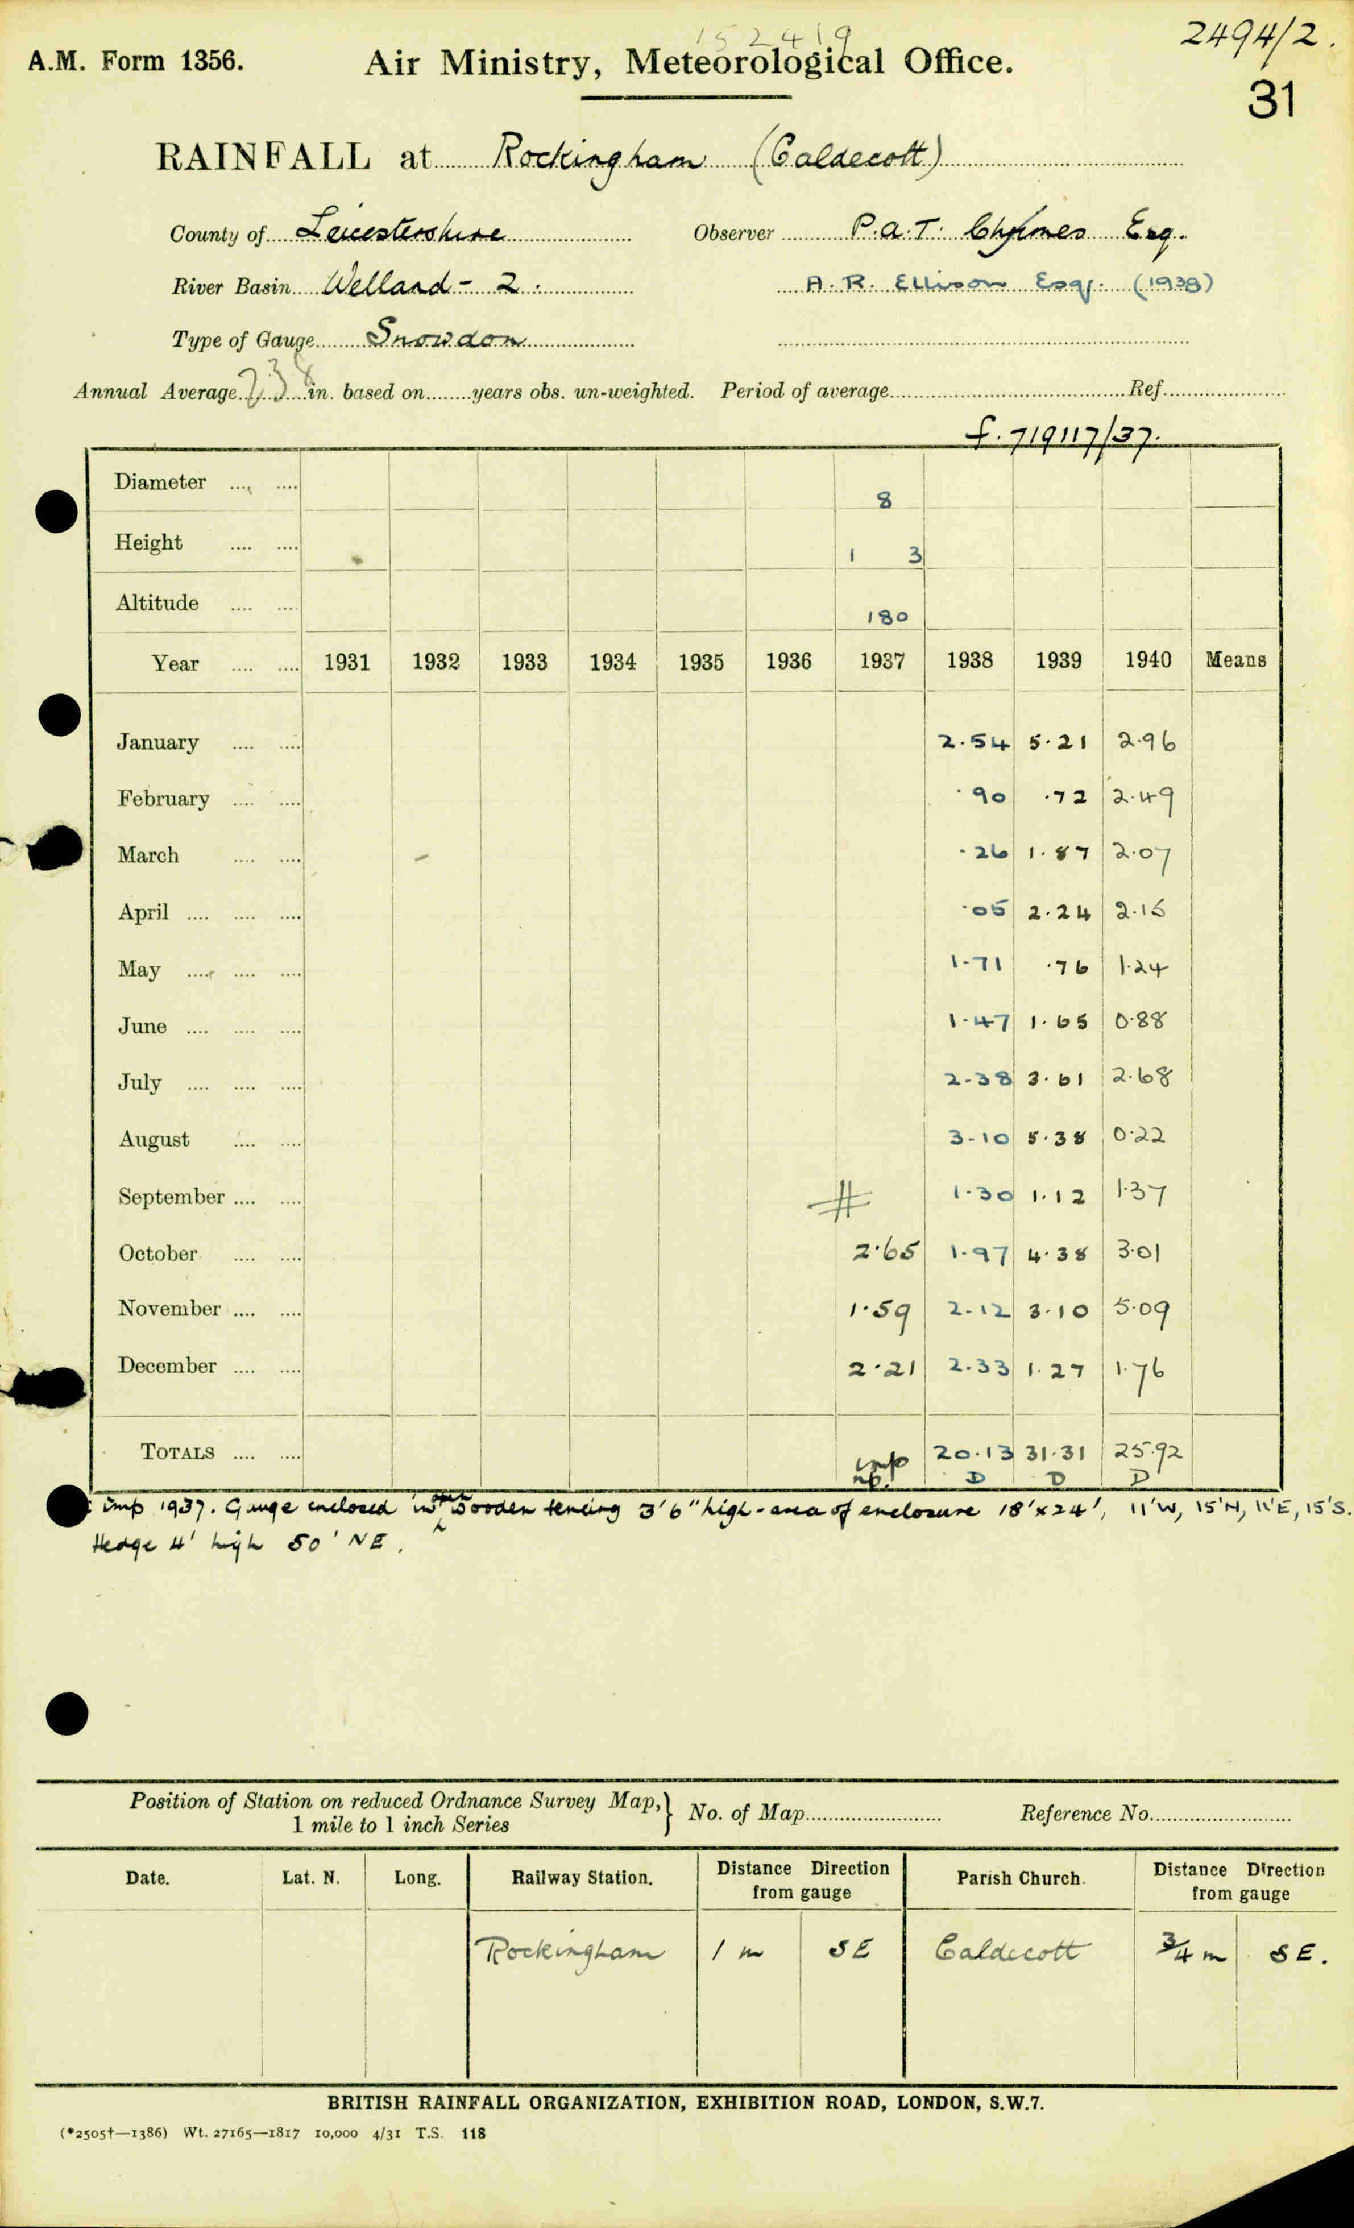 152419
2494/2.
A.M. Form 1356. Air Ministry, Meteorological Office.
31
RAINFALL at Rockingham (Caldecott)
County of Leicestershire Observer P.A.T. Esq.
River Basin Welland - 2. A. R. Ellison Esq. (1938)
Type of Gauge Snowdon
Annual Average 23.8 in. based on years obs. un-weighted. Period of average Ref.
f. 719117/37.
Diameter 8
Height 1 3
Altitude 180
Year 1931 1932 1933 1934 1935 1936 1937 1938 1939 1940 Means
January 2.54 5.21 2.96
February .90 .72 2.49
March .26 1.87 2.07
April .05 2.24 2.15
May 1.71 .76 1.24
June 1.47 1.65 0.88
July 2.38 3.61 2.68
August 3.10 5.38 0.22
September # 1.30 1.12 1.37
October 2.65 1.97 4.38 3.01
November 1.59 2.12 3.10 5.09
December 2.21 2.33 1.27 1.76
TOTALS imp 20.13 31.31 25.92
np. D D D
imp 1937. Gauge enclosed in open wooden fencing 3'6" high - area of enclosure 18' x 24', 11'W, 15'N, 11'E, 15'S.
Hedge 4' high 50' NE.
Position of Station on reduced Ordnance Survey Map, 1 mile to 1 inch Series } No. of Map Reference No.
Date. Lat. N. Long. Railway Station. Distance Direction from gauge Parish Church. Distance Direction from gauge
Rockingham 1 m SE Caldecott 3/4 m SE.
BRITISH RAINFALL ORGANIZATION, EXHIBITION ROAD, LONDON, S.W.7.
(*2505†—1386) Wt. 27165—1817 10,000 4/31 T.S. 118